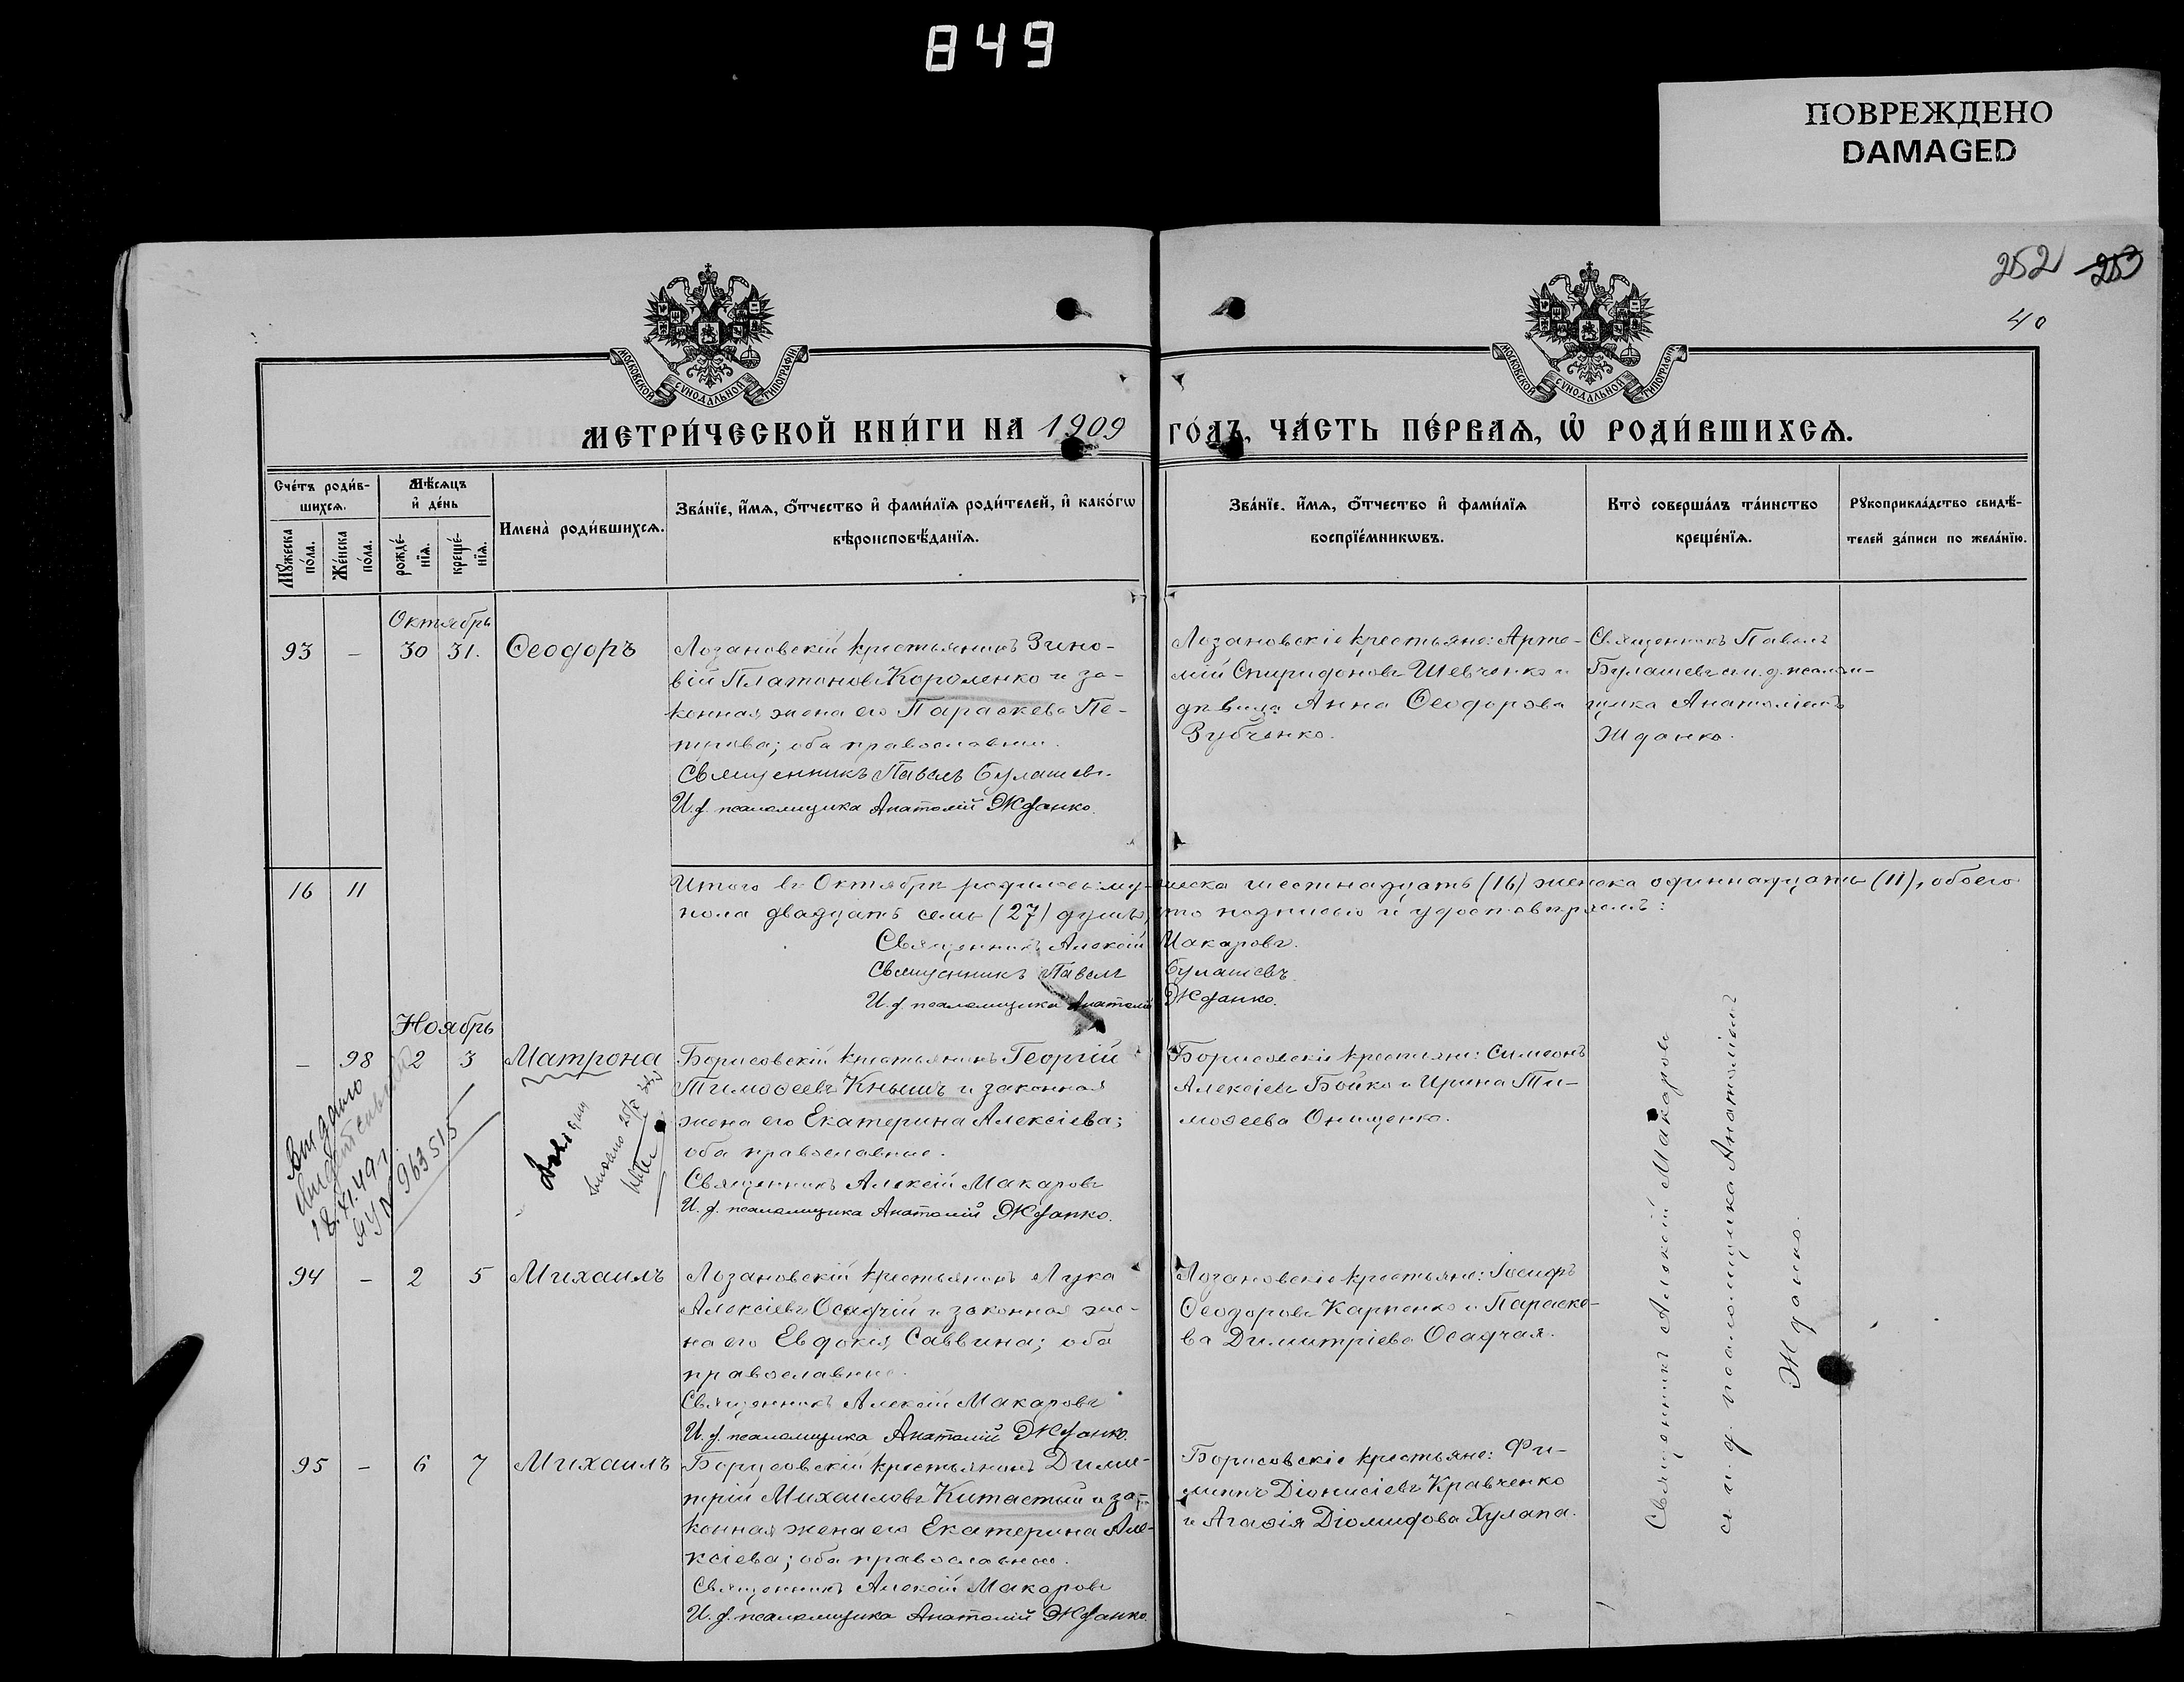 849
ПОВРЕЖДЕНО
DAMAGED
252 253
40
МОСКОВСКОЙ СѴНОДАЛЬНОЙ ТИПОГРАФІИ
МОСКОВСКОЙ СѴНОДАЛЬНОЙ ТИПОГРАФІИ
МЕТРИ́ЧЕСКОЙ КНИ́ГИ НА 1909 ГО́ДЪ, ЧА́СТЬ ПЕ́РВАѦ, Ѡ҆ РОДИ́ВШИХСѦ.
Сче́тъ роди́в-
шихсѧ.
Мꙋ́жеска по́ла.
Же́нска по́ла.
Мѣ́сѧцъ
и҆ де́нь
рожде́-
нїѧ.
креще́-
нїѧ.
Имена̀ роди́вшихсѧ.
Зва́нїе, и҆́мѧ, ѻ҆́тчество и҆ фами́лїѧ роди́телей, и҆ како́гѡ
вѣроисповѣ́данїѧ.
Зва́нїе, и҆́мѧ, ѻ҆́тчество и҆ фами́лїѧ
воспрїе́мникѡвъ.
Кто̀ соверша́лъ та́инство
креще́нїѧ.
Рꙋкоприкла́дство свидѣ́-
телей за́писи по жела́нїю.
Октябрь
93 – 30 31. Ѳеодоръ
Лозановскій крестьянинъ Зино-
вій Платоновъ Короленко и за-
конная жена его Параскева Пе-
трова; оба православные.
Священникъ Павелъ Булашевъ.
И. д. псаломщика Анатолій Жданко.
Лозановскіе крестьяне: Арте-
мій Спиридоновъ Шевченко и
дѣвица Анна Ѳеодорова
Зубченко.
Священникъ Павелъ
Булашевъ съ и. д. псалом-
щика Анатоліемъ
Жданко.
16 11
Итого въ Октябрѣ родилось: мужеска шестнадцать (16) женска одиннадцать (11), обоего
пола двадцать семь (27) душъ, что подписью и удостовѣряемъ:
Священникъ Алексій Макаровъ.
Священникъ Павелъ Булашевъ.
И. д. псаломщика Анатолій Жданко.
Ноябрь
– 98 2 3 Матрона
Борисовскій крестьянинъ Георгій
Тимоѳеевъ Кнышъ и законная
жена его Екатерина Алексіева;
оба православные.
Священникъ Алексій Макаровъ
И. д. псаломщика Анатолій Жданко.
Борисовскіе крестьяне: Симеонъ
Алексіевъ Бойко и Ирина Ти-
моѳеева Онищенко.
Выдано
18.XI.49 г.
963515
94 – 2 5 Михаилъ
Лозановскій крестьянинъ Лука
Алексіевъ Осадчій и законная же-
на его Евдокія Саввина; оба
православные.
Священникъ Алексій Макаровъ
И. д. псаломщика Анатолій Жданко.
Лозановскіе крестьяне: Іосифъ
Ѳеодоровъ Карпенко и Параске-
ва Димитріева Осадчая.
95 – 6 7 Михаилъ
Борисовскій крестьянинъ Дими-
трій Михаиловъ Китастый и за-
конная жена его Екатерина Але-
ксіева; оба православные.
Священникъ Алексій Макаровъ
И. д. псаломщика Анатолій Жданко.
Борисовскіе крестьяне: Фи-
липпъ Діонисіевъ Кравченко
и Агаѳія Діомидова Хулапа.
Священникъ Алексій Макаровъ
съ и. д. псаломщика Анатоліемъ
Жданко.